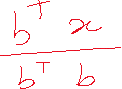 b^T x
b^T b